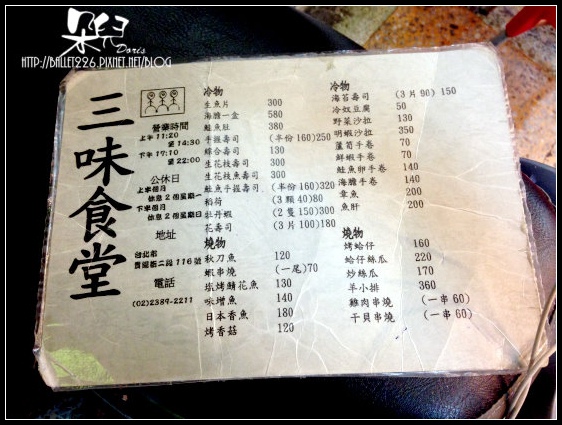 朵兒
Doris
HTTP://BALLET226.PIXNET.NET/BLOG
三味食堂
營業時間
上午11:20
至14:30
下午17:10
至22:00
公休日
上半個月
休息2個星期一
下半個月
休息2個星期日
地址
台北市
貴陽街二段116號
電話
(02)2389-2211
冷物
生魚片 300
海膽一盒 580
鮭魚肚 380
手握壽司 (半份160)250
綜合壽司 130
生花枝壽司 300
生花枝魚壽司 300
鮭魚手握壽司 (半份160)320
稻荷 (3顆40)80
牡丹蝦 (2隻150)300
花壽司 (3片100)180
燒物
秋刀魚 120
蝦串燒 (一尾)70
塩烤鯖花魚 130
味增魚 140
日本香魚 180
烤香菇 120
冷物
海苔壽司 (3片90)150
冷奴豆腐 50
野菜沙拉 130
明蝦沙拉 350
蘆筍手卷 70
鮮蝦手卷 70
鮭魚卵手卷 140
海膽手卷 140
章魚 200
魚肝 200
燒物
烤蛤仔 160
蛤仔絲瓜 220
炒絲瓜 170
羊小排 360
雞肉串燒 (一串60)
干貝串燒 (一串60)